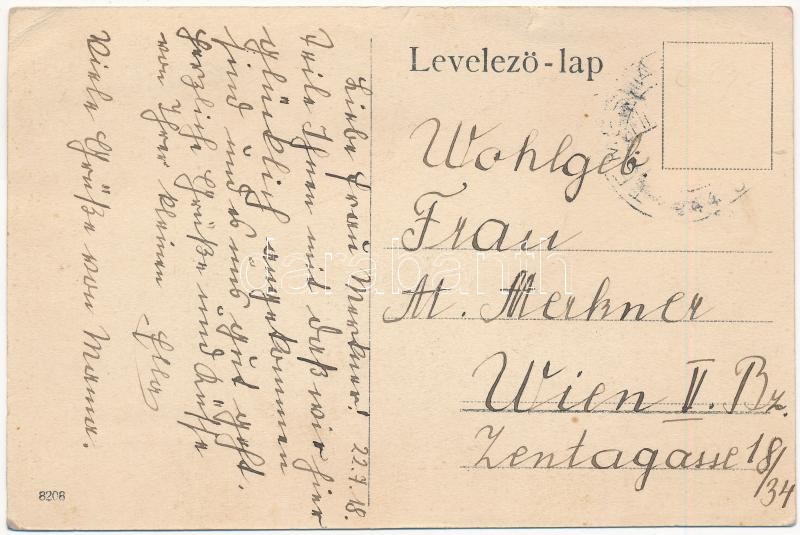 Levelező-lap
Wohlgeb.
Frau
M. Merkner
Wien V. Bz.
Zentagasse 18/
34
22.7.18.
Liebe Frau Merkner!
Teile Ihnen mit daß wir hier
glücklich angekommen
sind und es uns gut geht.
Herzliche Grüße und Küsse
von Ihrer kleinen
Ella
Viele Grüße von Mama.
8206
darabanth